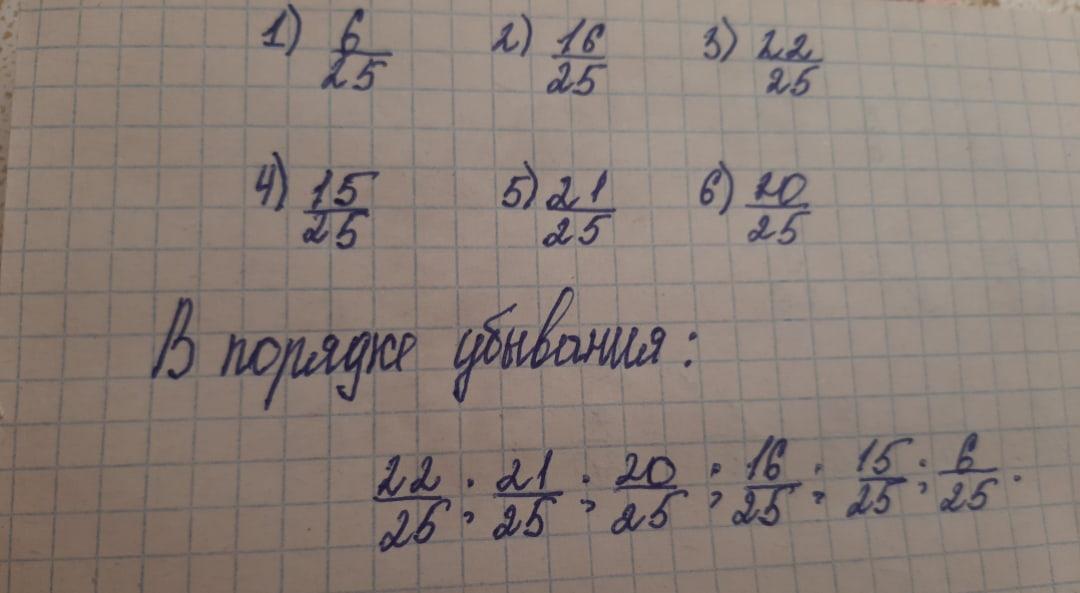 1) 6/25 2) 16/25 3) 22/25
4) 15/25 5) 21/25 6) 20/25
В порядке убывания:
22/25; 21/25; 20/25; 16/25; 15/25; 6/25.